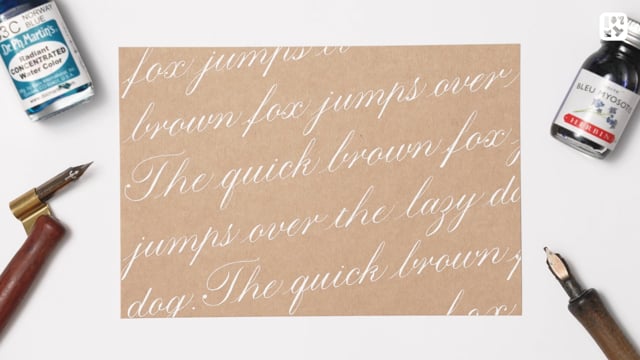 3C NORWAY BLUE
Dr. Ph. Martin's
Radiant
CONCENTRATED
Water Color
fox jumps ov
brown fox jumps over
The quick brown fox j
jumps over the lazy do
dog. The quick brown f
fox
BLEU MYOSOTI
HERBIN